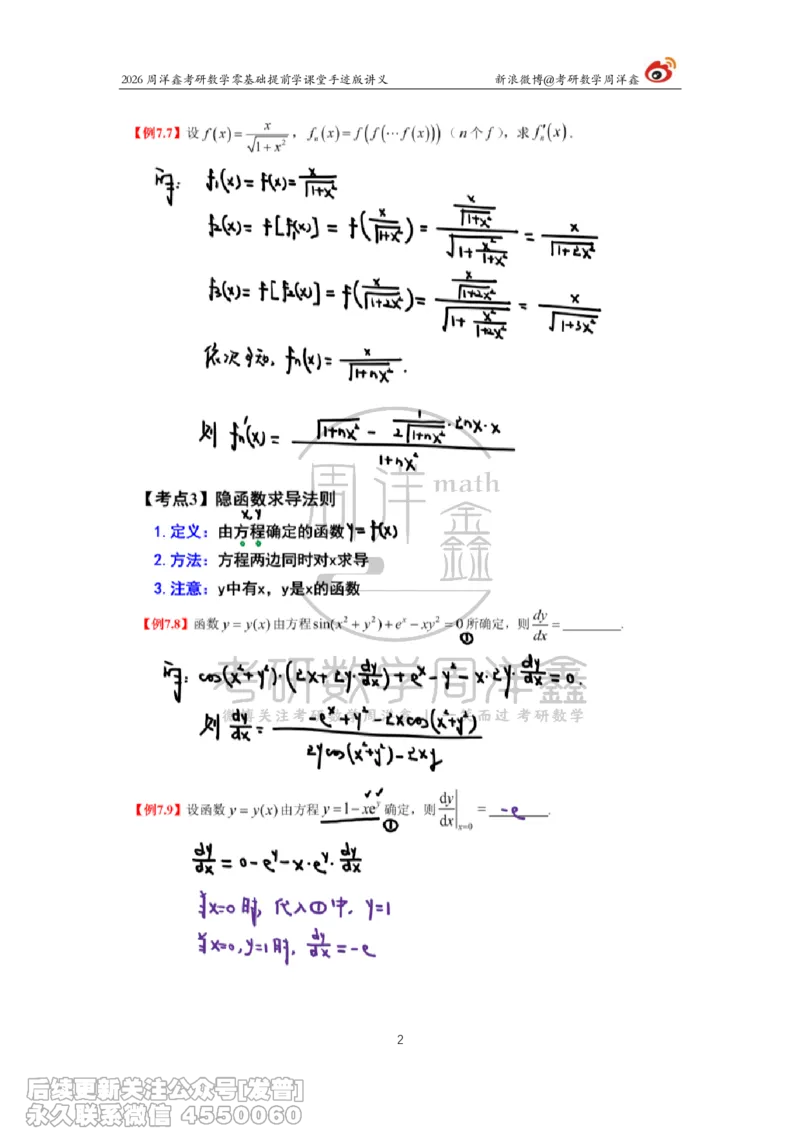 2026 周洋鑫考研数学零基础提前学课堂手迹版讲义 新浪微博@考研数学周洋鑫
【例7.7】设 f(x)=x/√(1+x²)，fₙ(x)=f(f(⋯f(x)))（n个f），求 fₙ′(x).
解：f₁(x)=f(x)=x/√(1+x²)
f₂(x)=f[f₁(x)]=f(x/√(1+x²))=(x/√(1+x²))/√(1+x²/(1+x²))=x/√(1+2x²)
f₃(x)=f[f₂(x)]=f(x/√(1+2x²))=(x/√(1+2x²))/√(1+x²/(1+2x²))=x/√(1+3x²)
依次可知，fₙ(x)=x/√(1+nx²).
则 fₙ′(x)=(√(1+nx²)-1/(2√(1+nx²))·2nx·x)/(1+nx²)
周洋 math
鑫
【考点3】隐函数求导法则
x,y
1.定义：由方程确定的函数y=f(x)
2.方法：方程两边同时对x求导
3.注意：y中有x，y是x的函数
【例7.8】函数 y=y(x)由方程sin(x²+y²)+eˣ-xy²=0所确定，则 dy/dx=________.
①
考研数学周洋鑫
解：cos(x²+y²)·(2x+2y·dy/dx)+eˣ-y²-x·2y·dy/dx=0.
则 dy/dx=(-eˣ+y²-2xcos(x²+y²))/(2ycos(x²+y²)-2xy)
【例7.9】设函数 y=y(x)由方程 y=1-xeʸ 确定，则 dy/dx|ₓ₌₀ = -e.
①
dy/dx=0-eʸ-x·eʸ·dy/dx
当x=0时，代入①中，y=1
当x=0,y=1时，dy/dx=-e
2
后续更新关注公众号[发普]
永久联系微信 4550060